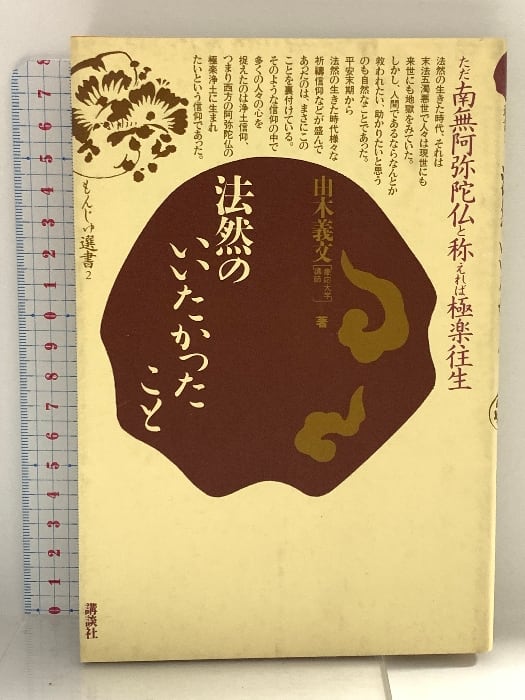 ただ南無阿弥陀仏と称えれば極楽往生
法然の生きた時代、それは
末法五濁悪世で人々は現世にも
来世にも地獄をみていた。
しかし、人間であるならなんとか
救われたい、助かりたいと思う
のも自然なことであった。
平安末期から
法然の生きた時代様々な
祈禱信仰などが盛んで
あったのは、まさにこの
ことを裏付けている。
そのような信仰の中で
多くの人々の心を
捉えたのは浄土信仰、
つまり西方の阿弥陀仏の
極楽浄土に生まれ
たいという信仰であった。
由木義文
[慶応大学講師]
著
法然の
いいたかった
こと
もんじゅ選書2
講談社
7
6
5
4
3
2
1
50
9
8
7
6
5
4
3
2
1
0